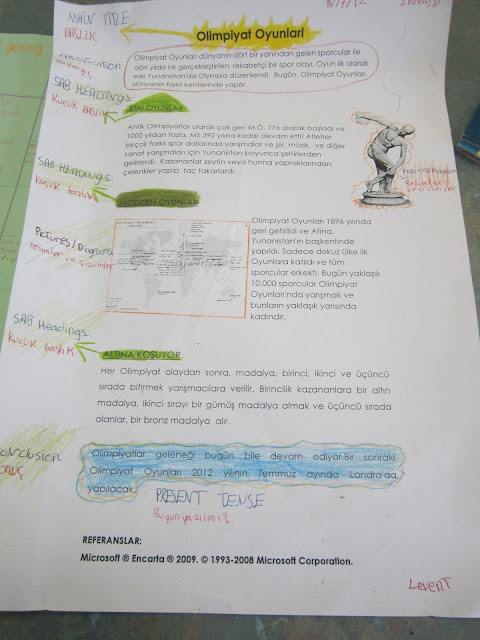 8/7/12
Levent
MAIN TITLE
BAŞLIK
Olimpiyat Oyunlari
Olimpiyat Oyunları dünyanın dört bir yanından gelen sporcular ile
dört yılda bir gerçekleştirilen, rekabetçi bir spor olayı. Oyun ilk olarak
eski Yunanistan'da Olympia düzenlendi. Bugün, Olimpiyat Oyunları
dünyanın farklı kentlerinde yapılır.
SAB HEADINGS
Kuçuk BAŞLIK
ESKİ OYUNLAR
Antik Olimpiyatlar olarak çok geri M.Ö. 776 olarak başladı ve
1000 yıldan fazla, MS 392 yılına kadar devam etti! Atletler
birçok farklı spor dallarında yarışmalar ve şiir, müzik, ve diğer
sanat yarışmaları için Yunanistan boyunca şehirlerden
gelirlerdi. Kazananlar zeytin veya hurma yapraklarından
çelenkler yapip taç takarlardı.
SAB HEADINGS
Kuçuk başlık
MODERN OYUNLAR
Pictures/Diagram
resimler ve çizimler
Olimpiyat Oyunları 1896 yılında
geri getirildi ve Atina,
Yunanistan'ın başkentinde
yapıldı. Sadece dokuz ülke ilk
Oyunlara katıldı ve tüm
sporcular erkekti. Bugün yaklaşık
10.000 sporcular Olimpiyat
Oyunları'nda yarışmak ve
bunların yaklaşık yarısında
kadındır.
SAB Headings
Kuçuk başlık
ALTINA KOŞUYOR
Her Olimpiyat olaydan sonra, madalya, birinci, ikinci ve üçüncü
sırada bitirmek yarışmacılara verilir. Birincilik kazananlara bir altın
madalya, ikinci sırayı bir gümüş madalya almak ve üçüncü sırada
olanlar, bir bronz madalya alır.
Olimpiyatlar geleneği bugün bile devam ediyor.Bir sonraki
Olimpiyat Oyunları 2012 yılının Temmuz ayında Londra'da
yapılacak.
PRESENT TENSE
Bugun yazılmış
REFERANSLAR:
Microsoft ® Encarta ® 2009. © 1993-2008 Microsoft Corporation.
Levent